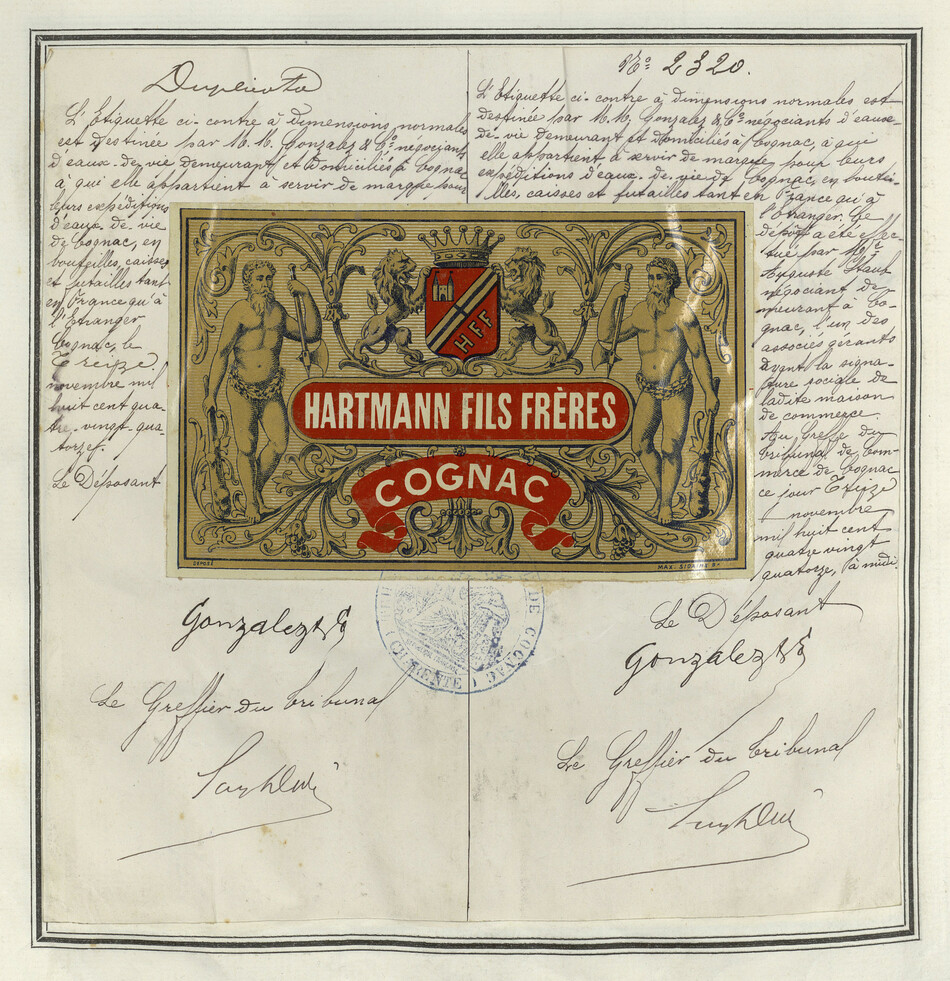 Duplicata
L'Etiquette ci-contre à dimensions normales
est destinée par M.M. Gonzalez & Cie négociants
d'eaux-de-vie demeurant et domiciliés à Cognac
à qui elle appartient à servir de marque pour
leurs expéditions
d'eaux-de-vie
de Cognac, en
bouteilles, caisses
et futailles tant
en France qu'à
l'Etranger
Cognac, le
Treize
novembre mil
huit cent qua-
tre-vingt-qua-
torze.
Le Déposant
Gonzalez & C
Le Greffier du tribunal
No 2320.
L'Etiquette ci-contre à dimensions normales est
destinée par M.M. Gonzalez & Cie négociants d'eaux-
de-vie demeurant et domiciliés à Cognac, à qui
elle appartient à servir de marque pour leurs
expéditions d'eaux-de-vie de Cognac, en boutei-
lles, caisses et futailles tant en France qu'à
l'Etranger. Le
dépôt a été effec-
tué par Mr
Auguste
négociant de-
meurant à Co-
gnac, l'un des
associés gérants
ayant la signa-
ture sociale de
ladite maison
de commerce.
Au Greffe du
tribunal de Com-
merce de Cognac
ce jour Treize
novembre
mil huit cent
quatre vingt
quatorze, à midi.
Le Déposant
Gonzalez & C
Le Greffier du tribunal
HFF
HARTMANN FILS FRÈRES
COGNAC
DÉPOSÉ
DE COGNAC